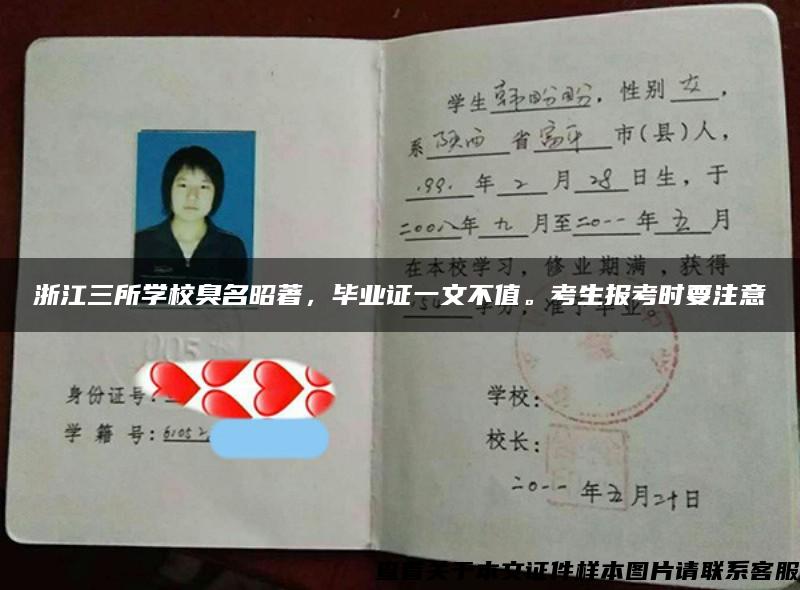 学生韩盼盼，性别女，
系陕西省富平市(县)人，
1991年2月28日生，于
二00八年九月至二0一一年五月
在本校学习，修业期满，获得
浙江三所学校臭名昭著，毕业证一文不值。考生报考时要注意
学分，准予毕业。
身份证号：
学籍号：61052
学校：
校长：
二0一一年五月二十日
查看关于本文证件样本图片请联系客服